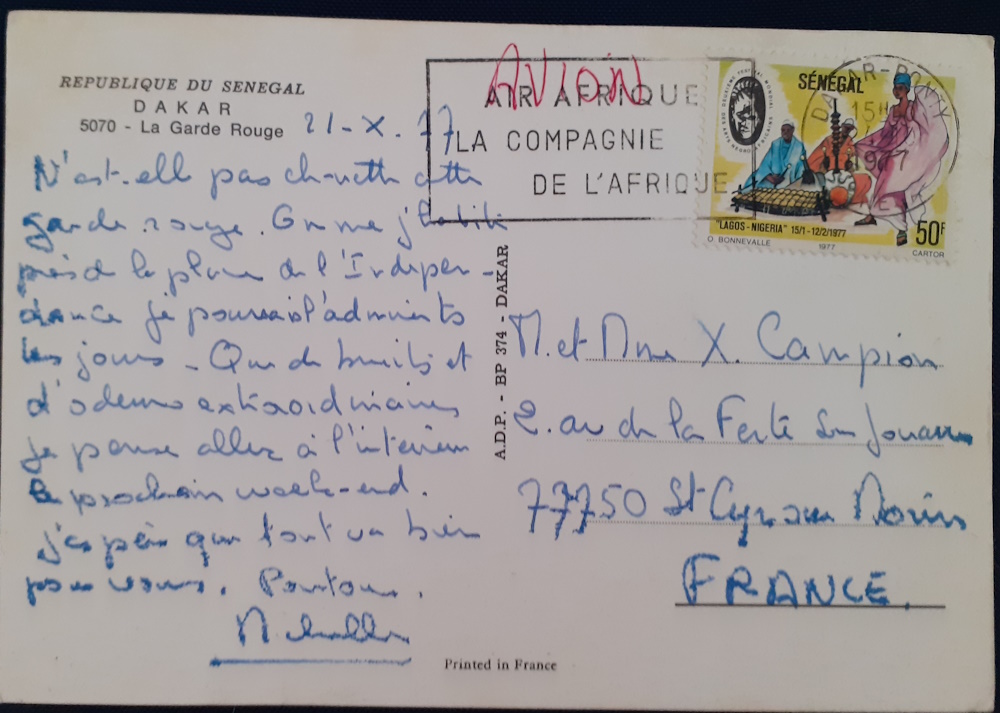 REPUBLIQUE DU SENEGAL
DAKAR
5070 - La Garde Rouge
21-X.77
N'est-elle pas chouette cette
garde rouge. Comme j'habite
près de la place de l'Indépen-
dance je pourrai l'admirer ts
les jours - Que de bruits et
d'odeurs extraordinaires
je pense aller à l'intérieur
le prochain week-end.
j'espère que tout va bien
pour vous.
AVION
AIR AFRIQUE
LA COMPAGNIE
DE L'AFRIQUE
SÉNÉGAL
"LAGOS-NIGERIA" 15/1-12/2/1977
50F
O BONNEVALLE 1977 CARTOR
DAKAR-PONTY
15H
1977
A.D.P. - BP 374 - DAKAR
M. et Mme X. Campion
2. av de la Ferté Sous Jouarre
77750 St Cyr sur Morin
FRANCE.
Printed in France